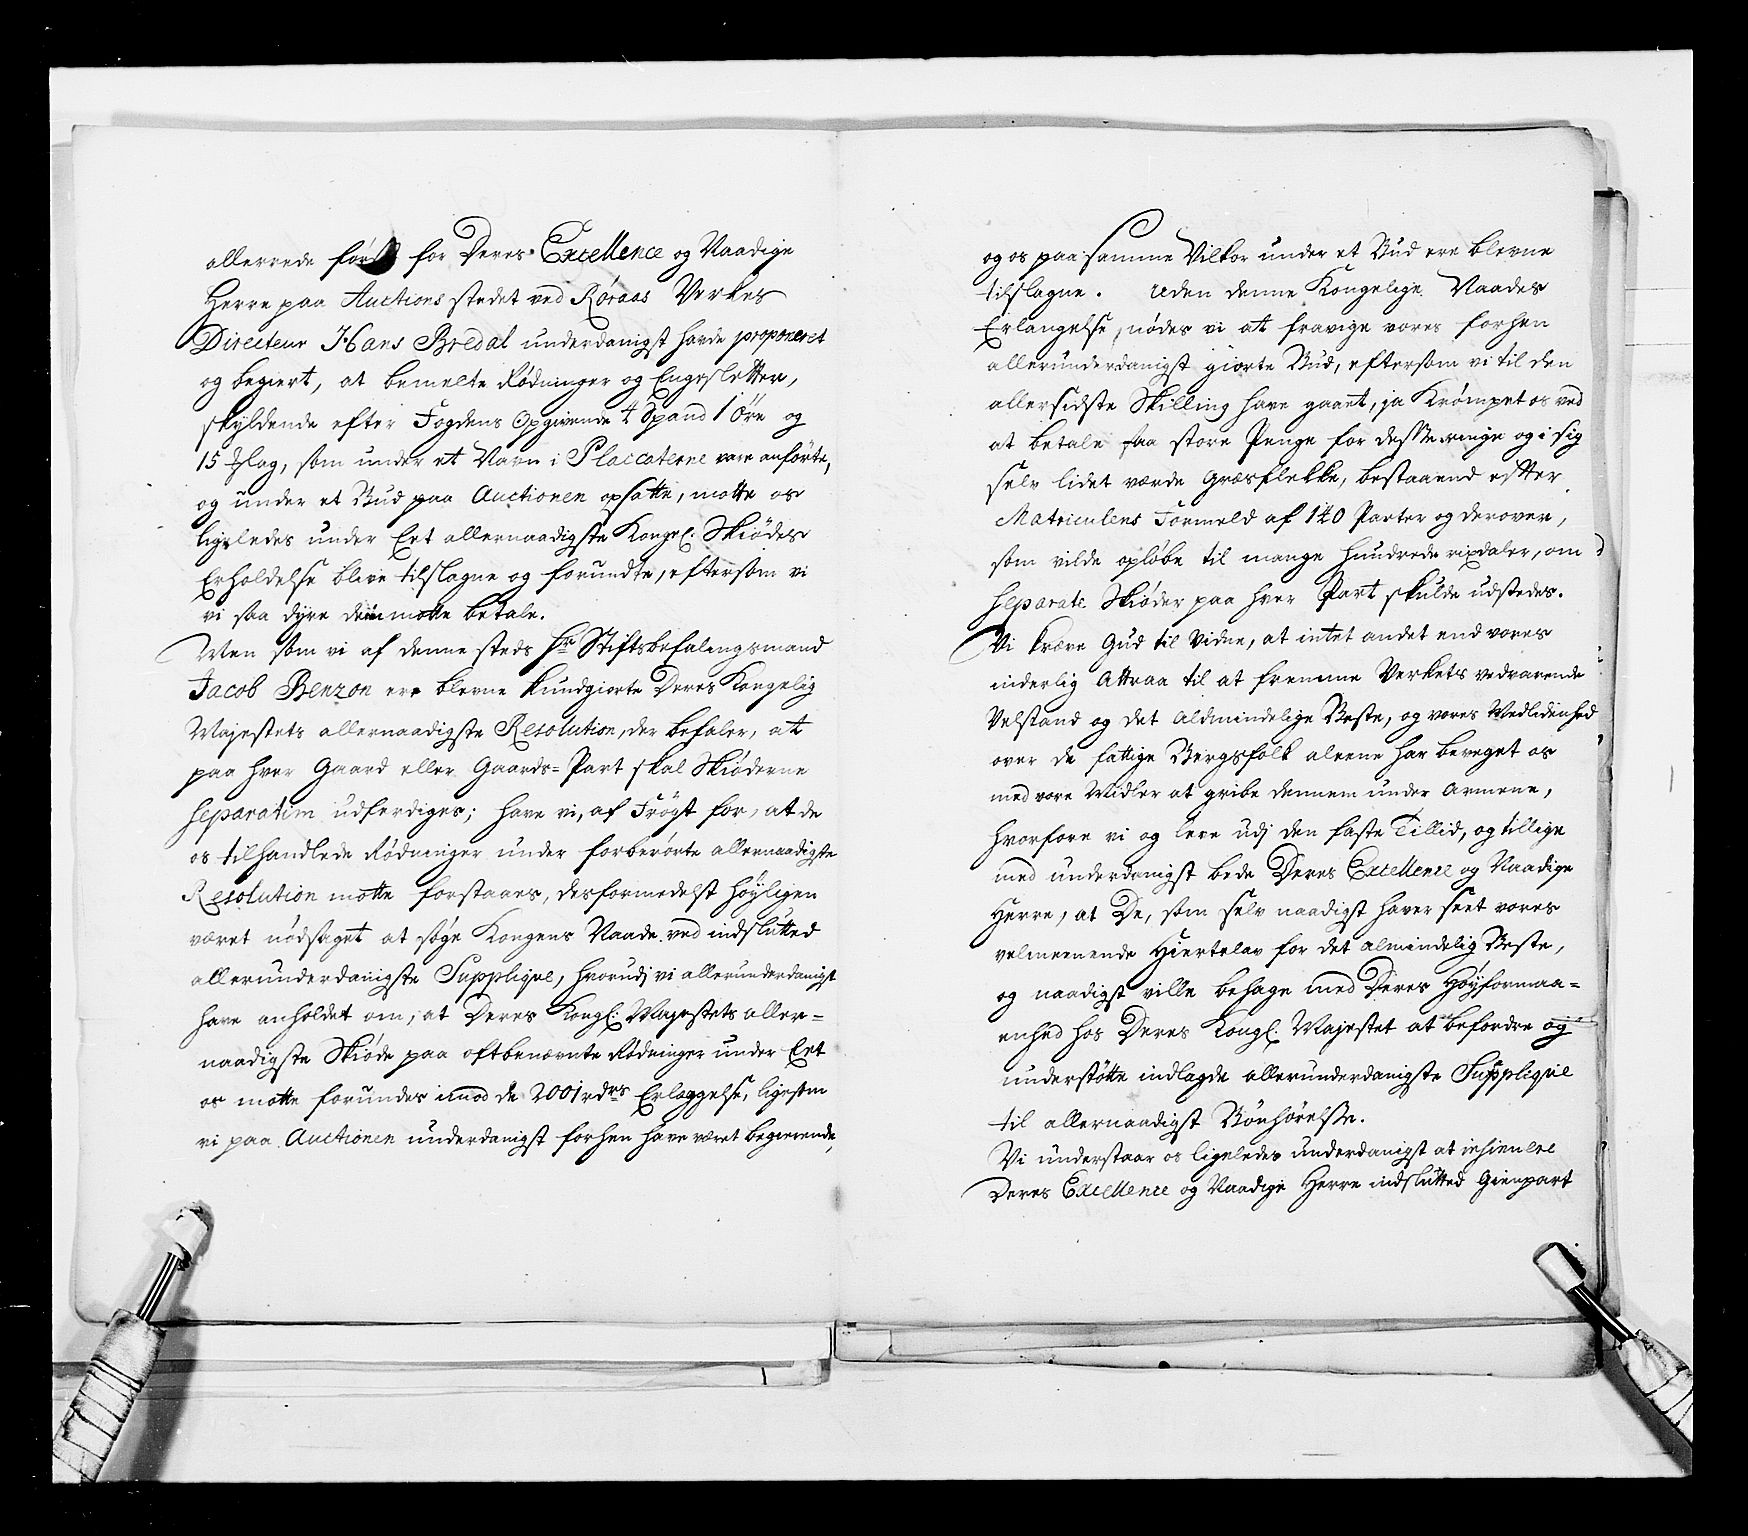 allerrede først for Deres Excellence og Naadige
Herre paa Auctions stedet ved Røraas Verkes
Directeur Hans Bredal underdanigst havde proponeret
og begiert, at bemelte Rødninger og Engesletter,
skyldende efter Fogdens Opgivende 4 Spand 1 Øre og
15 Mslag, som under et Navn i Placcaterne vare anførte,
og under et Bud paa Auctionen opsatte, motte os
ligeledes under Eet allernaadigste Kongel: Skiødes
Erholdelse blive tilslagne og forundte, eftersom vi
vi saa dyre dem motte betale.
Men som vi af denne steds Hr Stiftsbefalingsmand
Jacob Benzon ere blevne kundgiorte Deres Kongelig
Majestets allernaadigste Resolution, der befaler, at
paa hver Gaard eller Gaards-Part skal Skiøderne
separatim udferdiges; have vi, af Frøgt for, at de
os tilhandlede Rødninger under forberørte allernaadigste
Resolution motte forstaaes, desformedelst høyligen
været nødsaget at søge Kongens Naade ved indslutted
allerunderdanigste Supplique, hvorudj vi allerunderdanigst
have anholdet om, at Deres Kongl: Majestets aller-
naadigste Skiøde paa oftbenævnte Rødninger under Eet
os motte forundes imod de 2001 rdrs Erlæggelse, ligesom
vi paa Auctionen underdanigst forhen have været begierende,
og os paa samme Vilkor under et Bud ere blevne
tilslagne. Uden denne Kongelige Naades
Erlangelse, nødes vi at fravige vores forhen
allerunderdanigst giorte Bud, eftersom vi til den
allersidste Skilling have gaaet, ja Krømpet os ved
at betale saa store Penge for desse ringe og i sig
selv lidet værde Græsflekke, bestaaend efter
Matriculens Formeld af 140 Parter og derover,
som vilde opløbe til mange hundrede rixdaler, om
separate Skiøder paa hver Part skulde udstedes.
Vi kræve Gud til Vidne, at intet andet end vores
inderlig Attraa til at fremme Verkets vedvarende
Velstand og det Aldmindelige Beste, og vores Medlidenhed
over de fattige Bergsfolk aleene har beveget os
med vore Midler at gribe dennem under Armene,
hvorfore vi og leve udj den faste Tillid, og tillige
med underdanigst bede Deres Excellence og Naadige
Herre, at De, som selv naadigst haver seet vores
velmeenende Hiertelav for det almindelig Beste,
og naadigst ville behage med Deres Høyformaa-
enhed hos Deres Kongl. Majestet at befordre og
understøtte indlagde allerunderdanigste Supplique
til allernaadigst Bønhørelse.
Vi understaar os ligeledes underdanigst at insinuere
Deres Excellence og Naadige Herre indslutted Gienpart